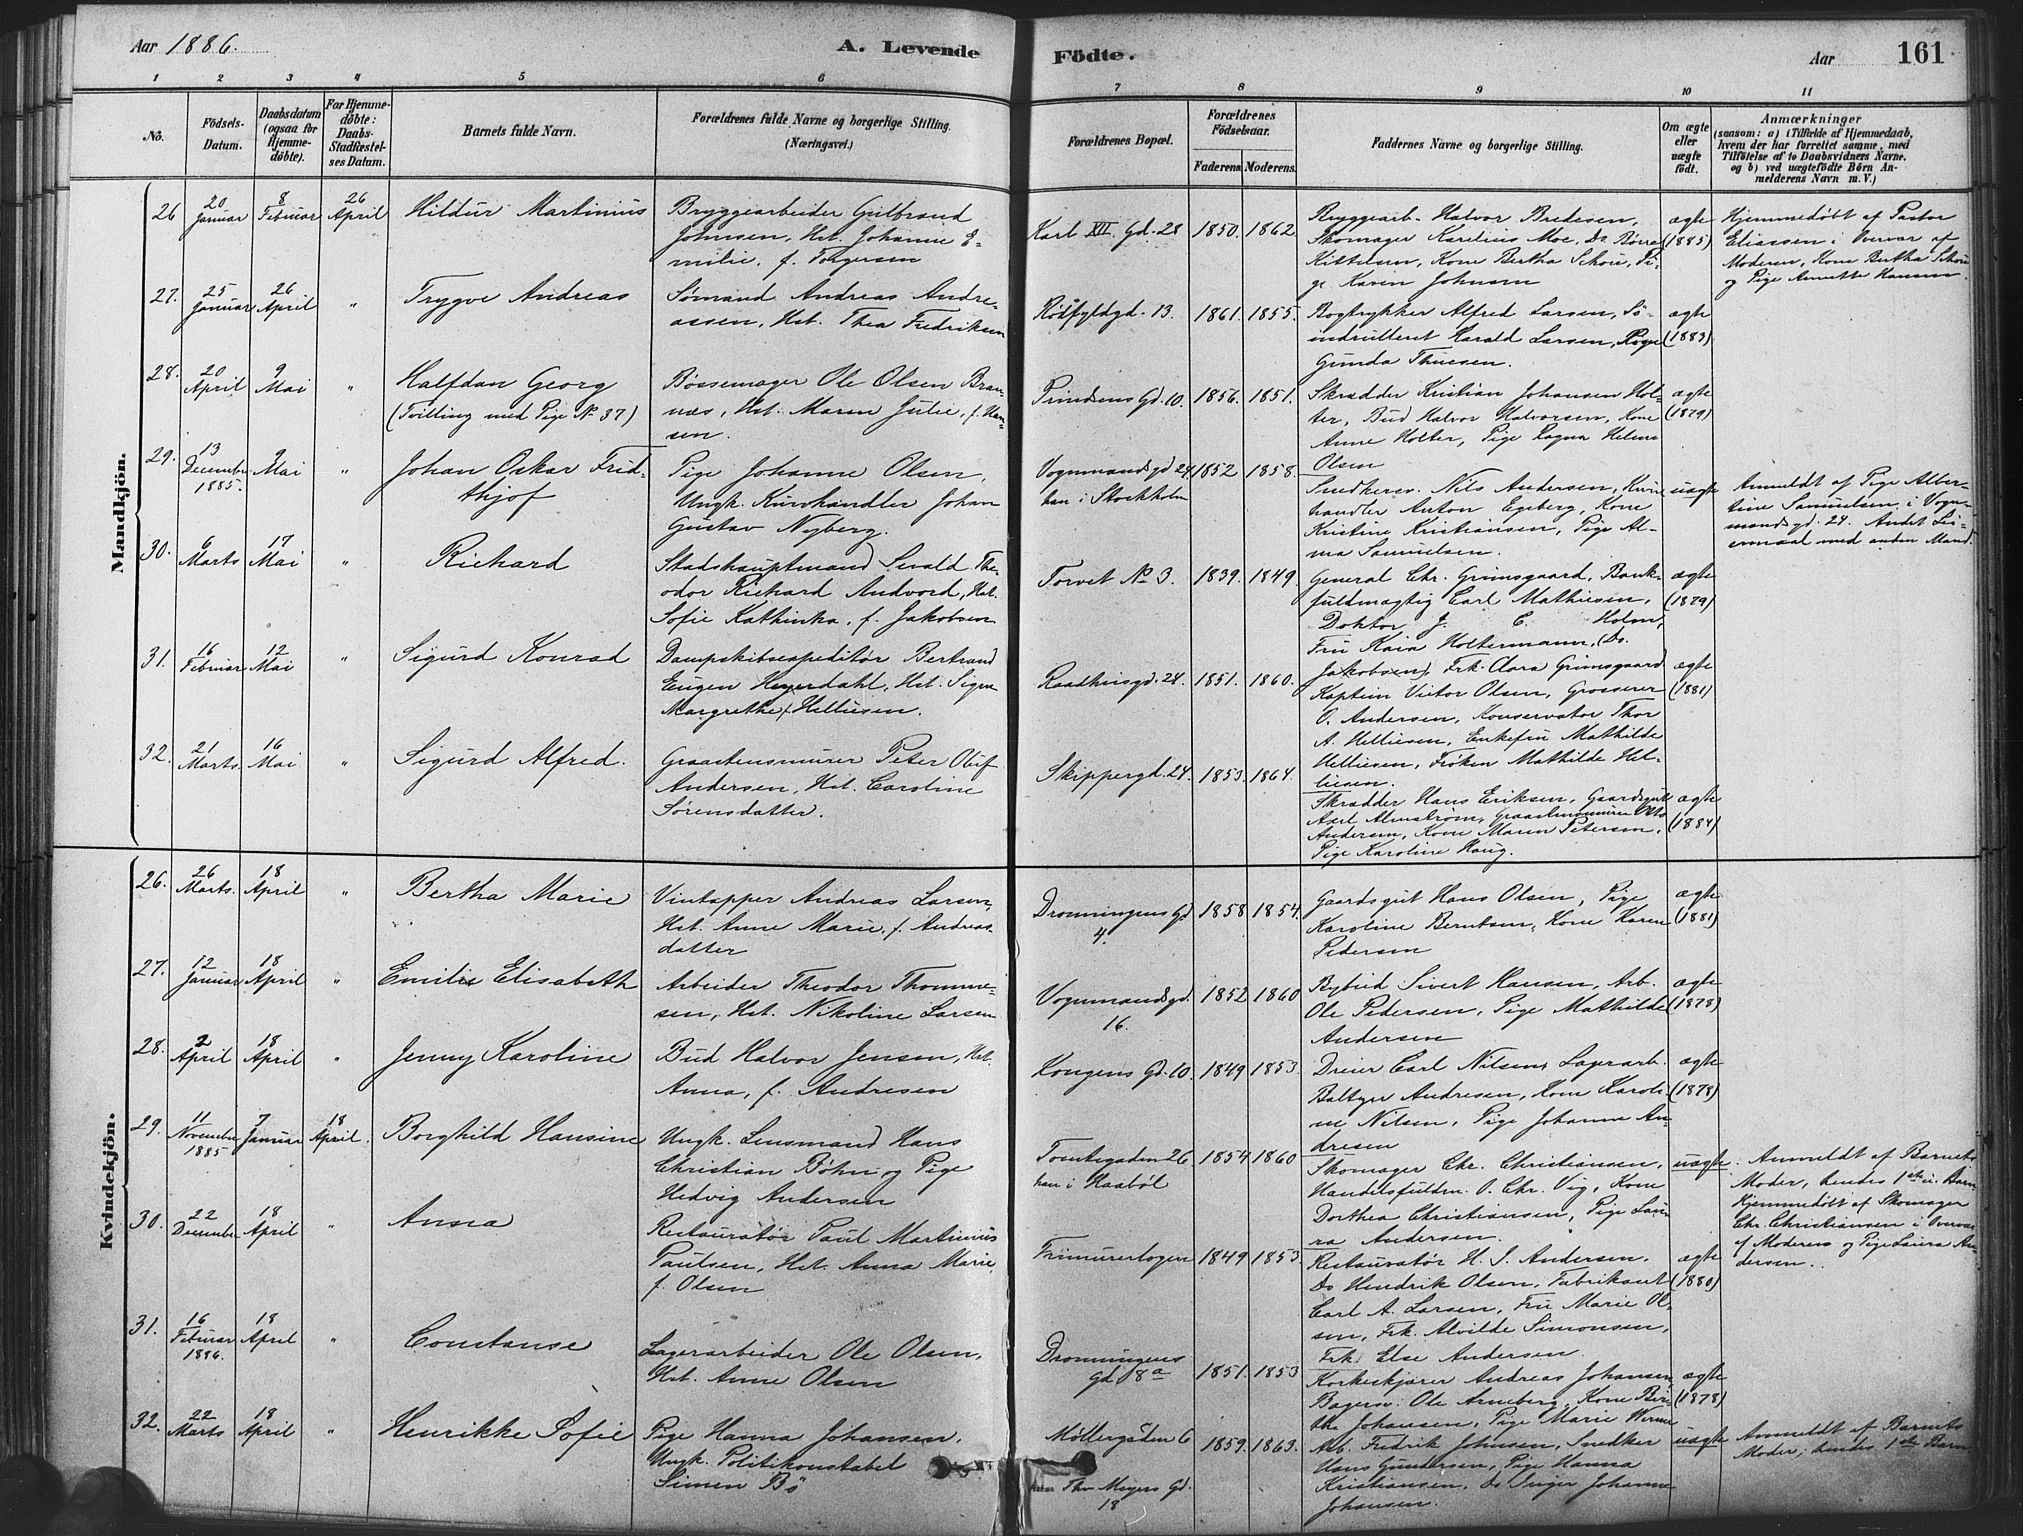 Aar 1886.
A. Levende
Födte.
Aar
161
1 2 3 4 5 6 7 8 9 10 11
No.
Födsels-
Datum.
Daabsdatum
(ogsaa for
Hjemme-
døbte).
For Hjemme-
døbte:
Daabs-
Stadfæstel-
ses Datum.
Barnets fulde Navn.
Forældrenes fulde Navne og borgerlige Stilling.
(Næringsvei.)
Forældrenes Bopæl.
Forældrenes
Födselsaar.
Faderens. Moderens.
Faddernes Navne og borgerlige Stilling.
Om ægte
eller
uægte
födt.
Anmærkninger
(saasom: a) i Tilfælde af Hjemmedaab,
hvem der har forrettet samme, med
Tilföielse af to Daabsvidners Navne,
og b) ved uægtefödte Börn An-
melderens Navn m. V.)
Mandkjön.
26
20
Januar
8
Februar
26
April
Hildur Martinius
Bryggearbeider Gulbrand
Johnsen, Hst. Johanne E-
milie, f. Torgersen
Karl XII Gd. 28
1850. 1862.
Bryggearb. Halvor Bredesen,
Skomager Karelius Moe, Do
Kittelsen, Kone Bertha Schou, Pi-
ge Karin Johnsen
ægte
(1885)
Hjemmedøbt af Pastor
Eliassen i Overvær af
Moderen, Kone Bertha Schou
og Pige Annette Hansen.
27.
25
Januar
26
April
"
Trygve Andreas
Sømand Andreas Andre-
assen, Hst. Thea Fredriksen
Rødfyldgd. 13.
1861. 1855.
Bogtrykker Alfred Larsen, Sø-
indrulleret Harald Larsen, Pige
Gunda Thuesen.
ægte
(1883)
28.
20
April
9
Mai
"
Halfdan Georg
(Tvilling med Pige No 37)
Bøssemager Ole Olsen Bran-
næs, Hst. Maren Julie, f. Han-
sen.
Prindsens Gd. 10.
1856. 1851.
Skrædder Kristian Johansen Hol-
ter, Bud Halvor Halvorsen, Kone
Anne Holter, Pige Ragna Helene
Olsen
ægte
(1879)
29.
13
December
1885.
9
Mai
"
Johan Oskar Frid-
thjof
Pige Johanne Olsen,
Ungk. Kurvhandler Johan
Gustav Nyberg.
Vognmandsgd 24
han i Stockholm
1852 1858.
Snedkersv. Nils Andersen,
handler Anton Egeberg, Kone
Kristine Kristiansen, Pige Al-
ma Samuelsen.
uægte
Anmeldt af Pige Alber-
tine Samuelsen i Vogn-
mandsgd. 24. Andet Lei-
ermaal med anden Mand.
30.
6
Marts
17
Mai
"
Richard
Stadshauptmand Sivald The-
odor Richard Andvord, Hst.
Sofie Kathinka, f. Jakobsen
Torvet No 3.
1839. 1849.
General Chr. Grimsgaard, Bank-
fuldmægtig Carl Mathiesen,
Doktor J. C. Holm,
Fru Kaia Holtermann, (Do.
Jakobsen), Frk. Clara Grimsgaard
ægte
(1879)
31.
16
Februar
12
Mai
"
Sigurd Konrad
Dampskibsexpeditør Bertrand
Eugen Heyerdahl, Hst. Signe
Margrethe f. Helliesen.
Raadhusgd. 24.
1851. 1860.
Kaptein Victor Olsen, Grosserer
O. Andersen, Konservator Thor
A. Helliesen, Enkefru Mathilde
Helliesen, Frøken Mathilde Hel-
liesen.
ægte
(1881)
32.
21
Marts
16
Mai
"
Sigurd Alfred.
Graastensmurer Peter Oluf
Andersen, Hst. Caroline
Sørensdatter.
Skippergd. 24.
1853. 1864.
Skrædder Hans Eriksen, Gaardsgut
Axel Almstrøm, Graastensmurer Otto
Andersen, Kone Maren Petersen,
Pige Karoline Haug.
ægte
(1884)
Kvindekjön.
26.
26
Marts.
18
April
"
Bertha Marie
Vintapper Andreas Larsen,
Hst. Anne Marie, f. Andreas-
datter
Dronningens Gd
4.
1858 1854.
Gaardsgut Hans Olsen, Pige
Karoline Berntsen, Kone Karen
Pedersen
ægte
(1881)
27.
12
Januar
18
April
"
Emilie Elisabeth
Arbeider Theodor Thomme-
sen, Hst. Nikoline Larsen
Vognmandsgd.
16.
1852 1860
Bybud Sivert Hansen, Arb.
Ole Pedersen, Pige Mathilde
Andersen
ægte
(1878)
28.
2
April
18
April
"
Jenny Karoline
Bud Halvor Jensen, Hst.
Anna, f. Andresen
Kongens Gd. 10.
1849 1853.
Dreier Carl Nilsen, Lagerarb.
Baltzer Andresen, Kone Karoli-
ne Nilsen, Pige Johanna An-
dresen
ægte
(1878)
29.
11
November
1885
7
Januar
18
April.
Borghild Hansine
Ungk. Lensmand Hans
Christian Bøhn og Pige
Hedvig Andersen
Tomtegaden 26
han i Haabøl
1854 1860
Skomager Chr. Christiansen,
Handelsfuldm. O. Chr. Vig, Kone
Dorthea Christiansen, Pige Lau-
ra Andersen.
uægte.
Anmeldt af Barnets
Moder, hendes 1ste u. Barn
Hjemmedøbt af Skomager
Chr. Christiansen i Overvær
af Moderen og Pige Laura An-
dersen.
30.
22
December
18
April
"
Anna
Restauratør Paul Martinius
Paulsen, Hst. Anna Marie,
f. Olsen
Frimurerlogen
1849 1853
Restauratør H. J. Andersen,
Do Hendrik Olsen, Fabrikant
Carl A. Larsen, Fru Marie Ol-
sen, Frk. Alvilde Simonsen,
Frk. Else Andersen.
ægte
(1880)
31.
16
Februar
1886.
18
April
"
Constanse
Lagerarbeider Ole Olsen,
Hst. Anne Olsen
Dronningens
Gd. 8a
1851. 1853
Korkeskjærer Andreas Johansen,
Bagersv. Ole Arneberg, Kone Bir-
the Johansen, Pige Marie
ægte
(1878)
32.
22
Marts
18
April
"
Henrikke Sofie
Pige Hanna Johansen,
Ungk. Politikonstabel
Simen Bö
Möllergaden 6
Thv Meyers Gd.
18
1859. 1863.
Arb. Fredrik Johnsen, Snedker
Hans Gundersen, Pige Hanna
Kristiansen, Do Inger Johanne
Johansen.
uægte
Anmeldt af Barnets
Moder; hendes 1ste Barn